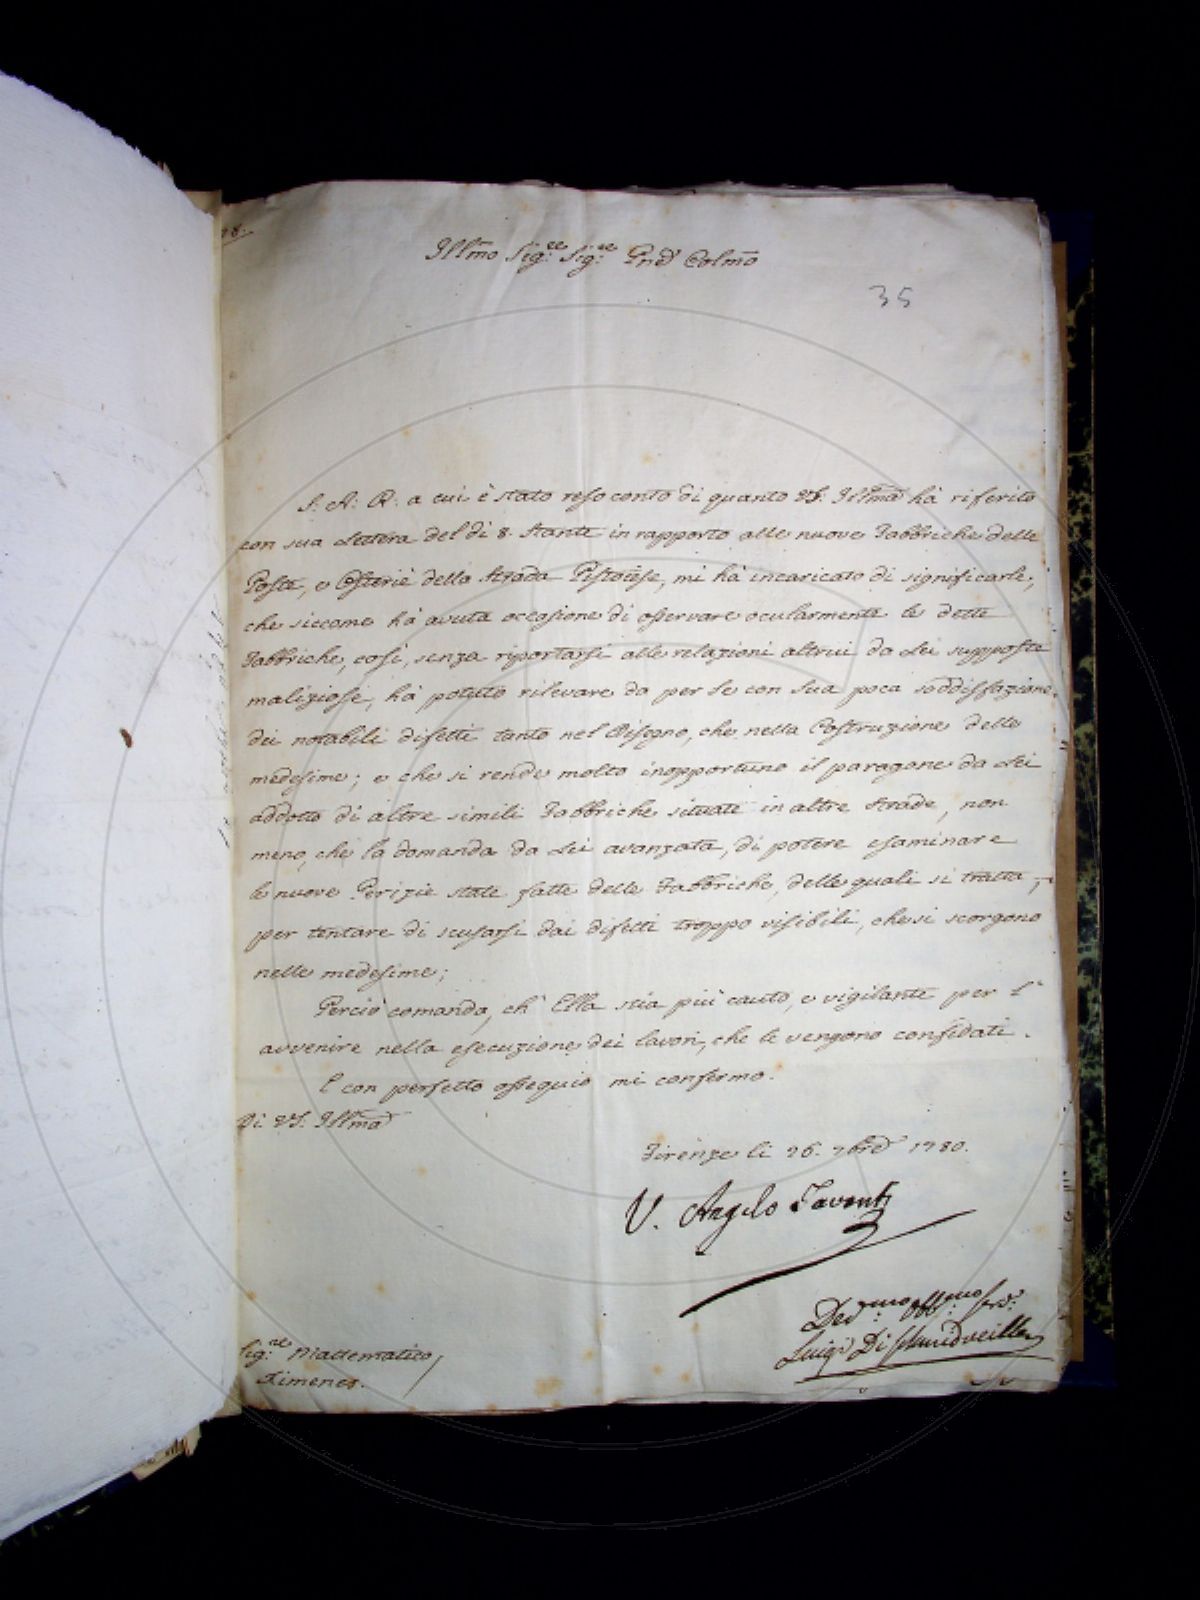 78.
Ill.mo Sig.re Sig.re Pnẽ Colmo
35
S. A. R. a cui è stato reso conto di quanto VS. Ill.ma hà riferito
con sua Lettera del dì 8. Stante in rapporto alle nuove Fabbriche delle
Poste, e Osterie della Strada Pistoiese, mi hà incaricato di significarle,
che siccome hà avuta occasione di osservare ocularmente le dette
Fabbriche, così, senza riportarsi alle relazioni altrui da Lei supposte
maliziose, hà potuto rilevare da per se con sua poca soddisfazione
dei notabili difetti tanto nel Disegno, che nella Costruzione delle
medesime; e che si rende molto inopportuno il paragone da Lei
addotto di altre simili Fabbriche situate in altre Strade, non
meno, che la domanda da Lei avanzata, di potere esaminare
le nuove Perizie state fatte delle Fabbriche, delle quali si tratta,
per tentare di scusarsi dai difetti troppo visibili, che si scorgono
nelle medesime;
Perciò comanda, ch' Ella stia più cauto, e vigilante per l'
avvenire nella esecuzione dei lavori, che le vengono confidati.
E con perfetto ossequio mi confermo.
Di VS. Ill.ma
Firenze li 26. 7bre 1780.
V. Angelo Tavanti
Dev.mo Obb.mo Ser.
Luigi Di Schmidveiller
Sig.re Mattematico
Ximenes.